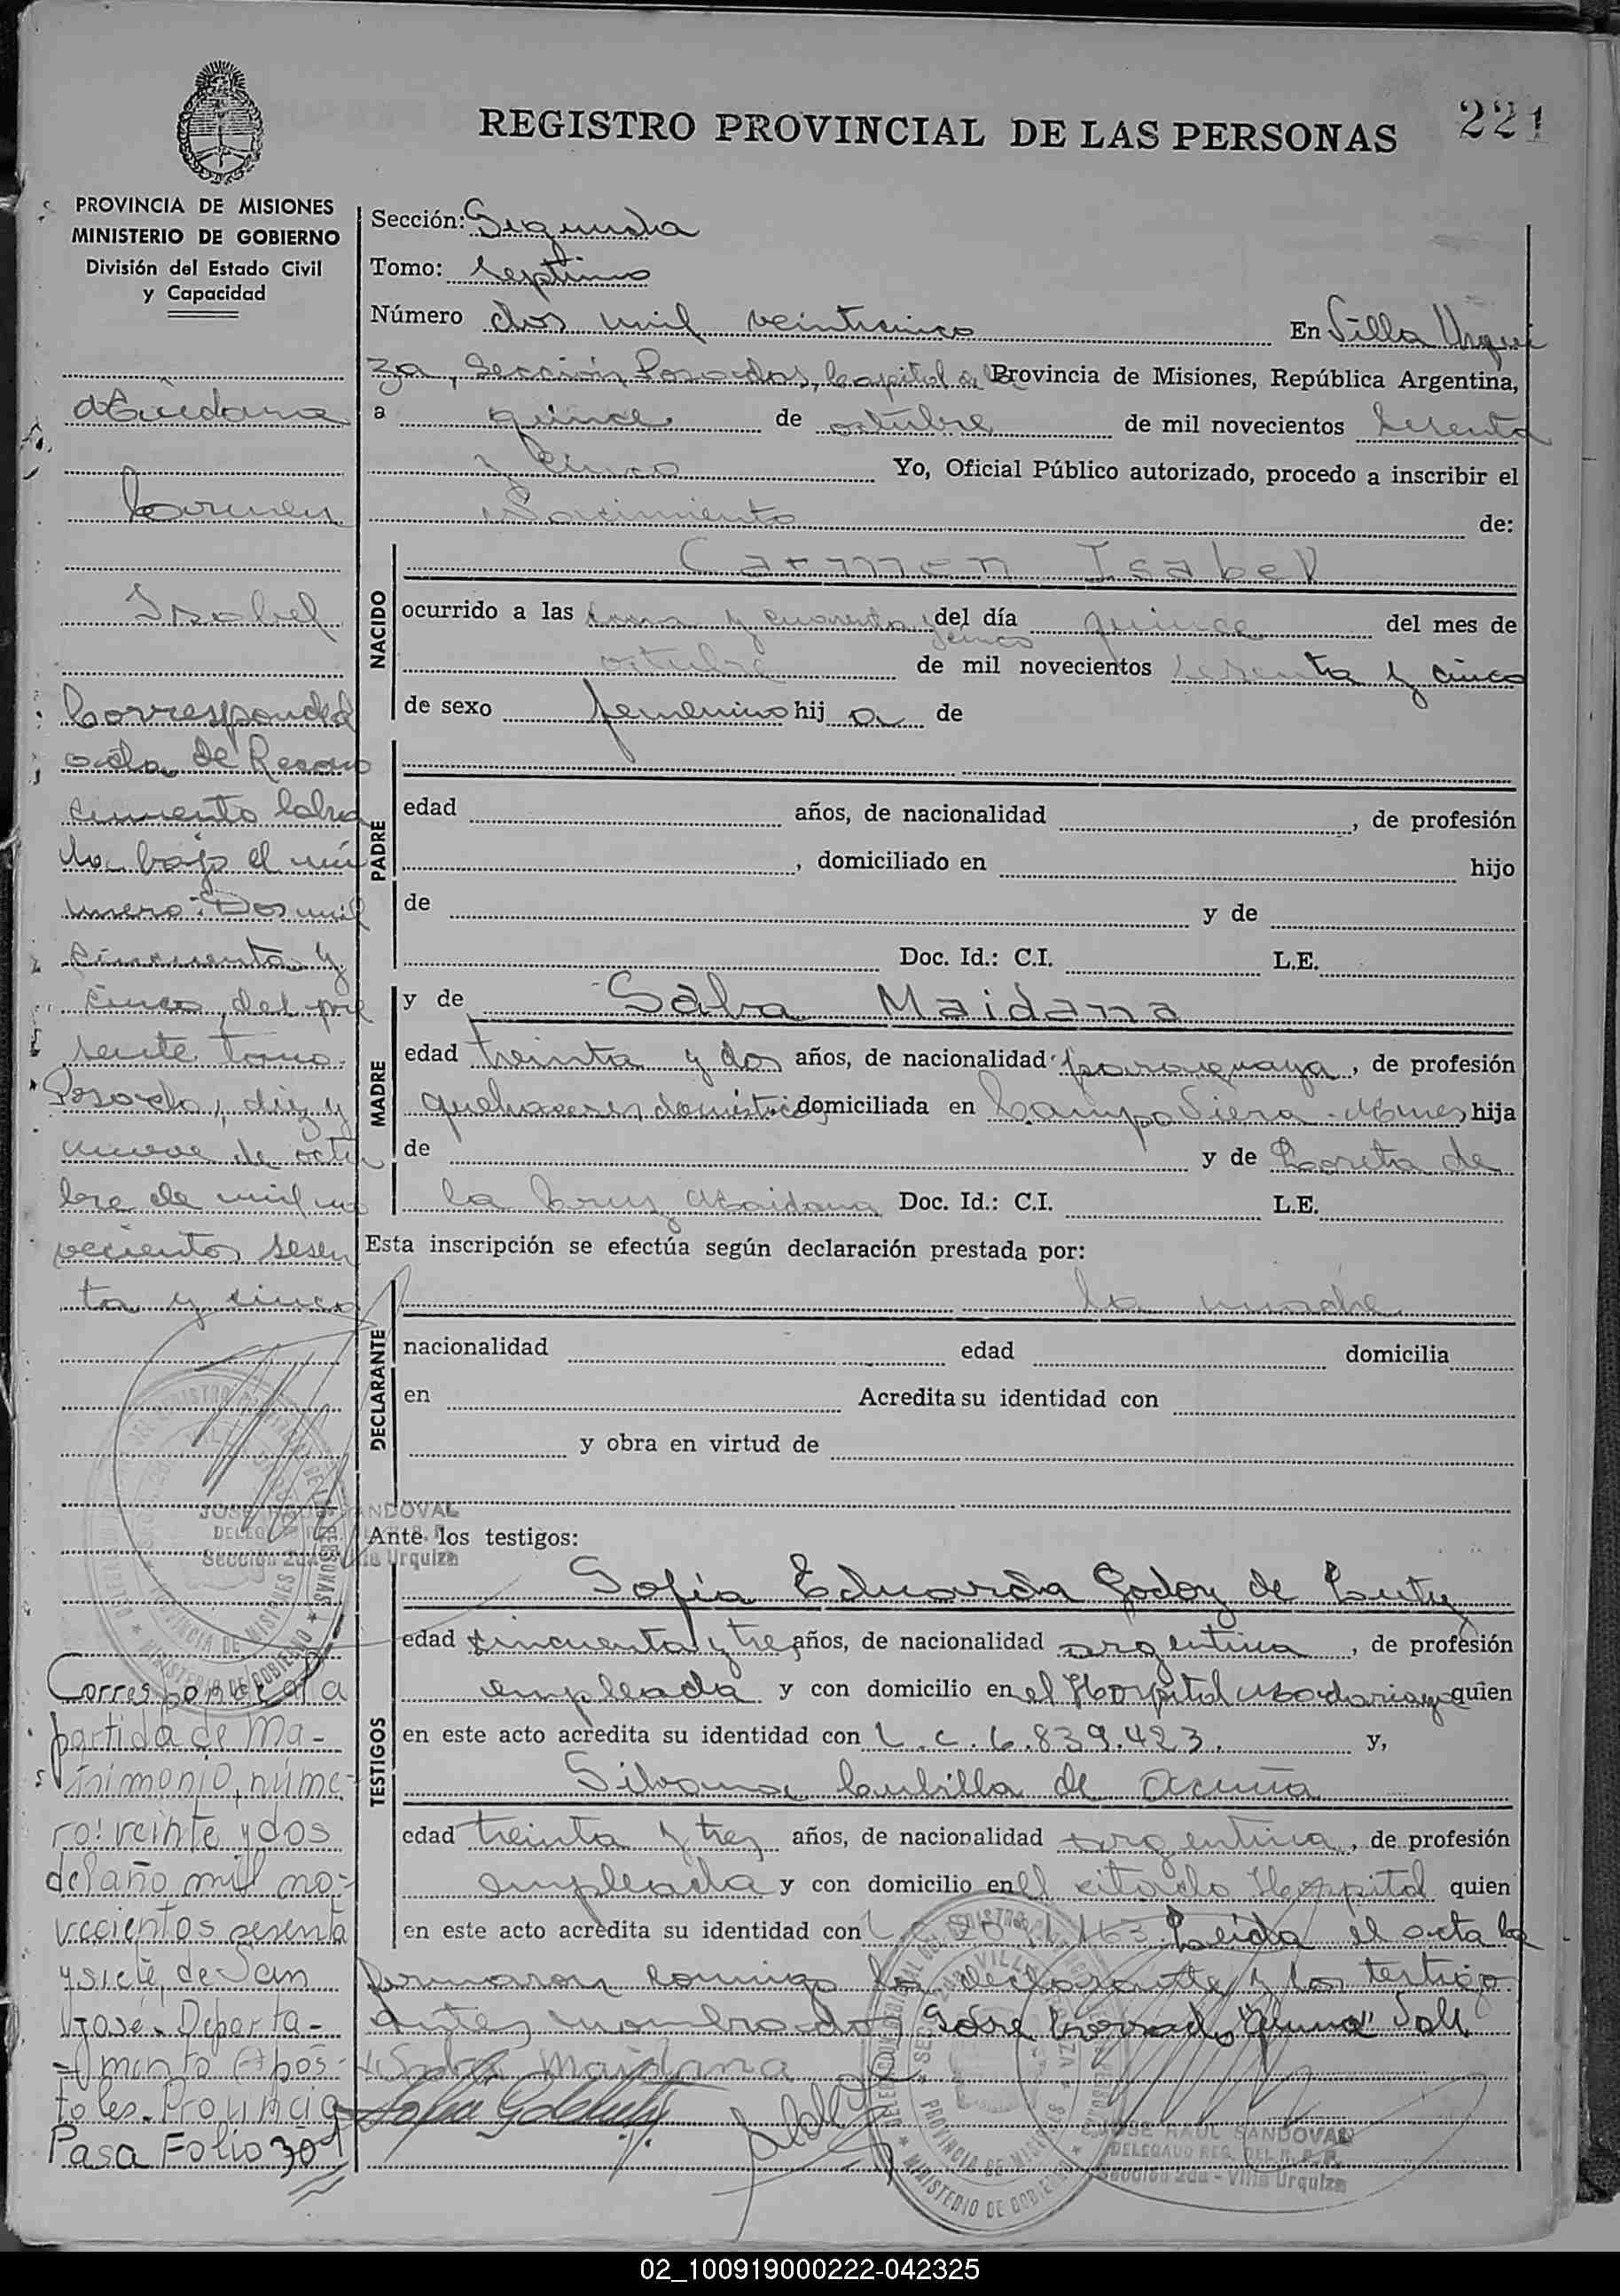 221
REGISTRO PROVINCIAL DE LAS PERSONAS
PROVINCIA DE MISIONES
MINISTERIO DE GOBIERNO
División del Estado Civil
y Capacidad
Maidana
Carmen
Isabel
Corresponde al
acta de Recono
cimiento labra
da bajo el nú
mero: Dos mil
cincuenta y
cinco, del pre
sente tomo.
Posadas, diez y
nueve de octu
bre de mil no
vecientos sesen
ta y cinco
JOSE RAUL SANDOVAL
Sección 2da - Villa Urquiza
Corresponde a la
partida de Ma-
trimonio, núme-
ro: veinte y dos
del año mil no-
vecientos sesenta
y siete, de San
José. Departa-
mento Apos-
toles. Provincia
Pasa Folio 301
Sección: Segunda
Tomo: Septimo
Número dos mil veinticinco En Villa Urqui
za, Sección Posadas, Capital de la Provincia de Misiones, República Argentina,
a quince de octubre de mil novecientos sesenta
y cinco Yo, Oficial Público autorizado, procedo a inscribir el
Nacimiento de:
NACIDO
Carmen Isabel
ocurrido a las una y cuarenta y cinco del día quince del mes de
octubre de mil novecientos sesenta y cinco
de sexo femenino hij a de
PADRE
edad años, de nacionalidad , de profesión
, domiciliado en hijo
de y de
Doc. Id.: C.I. L.E.
MADRE
y de Salva Maidana
edad treinta y dos años, de nacionalidad paraguaya, de profesión
quehaceres domésticos domiciliada en Campo Viera - Mnes, hija
de y de Loreta de
la Cruz Maidana Doc. Id.: C.I. L.E.
Esta inscripción se efectúa según declaración prestada por:
DECLARANTE
la madre
nacionalidad edad domicilia
en Acredita su identidad con
y obra en virtud de
Ante los testigos:
TESTIGOS
Sofía Eduarda Godoy de
edad cincuenta y tres años, de nacionalidad argentina, de profesión
empleada y con domicilio en el Hospital Madariaga quien
en este acto acredita su identidad con L.C. 6.839.423. y,
Silvana Cubilla de Acuña
edad treinta y tres años, de nacionalidad argentina, de profesión
empleada y con domicilio en el citado Hospital quien
en este acto acredita su identidad con Leida el acta la
firmaron conmigo la declarante y los testigo
antes nombrados Sobre borrado
Salva Maidana
JOSE RAUL SANDOVAL
DELEGADO REG. DEL R. P. P.
Sección 2da - Villa Urquiza
02_100919000222-042325